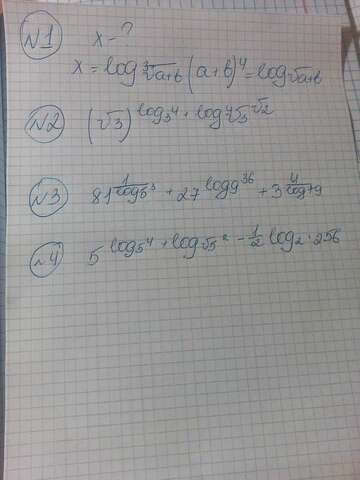 №1 x - ?
x = log_{∛(a+b)} (a+b)^4 = log_{√(a+b)}
№2 (√3)^{log_3 4 + log_{∜3} √2}
№3 81^{1/log_5 3} + 27^{log_9 36} + 3^{4/log_7 9}
№4 5^{log_5 4 + log_{√5} 2} - 1/2 log_2 · 256